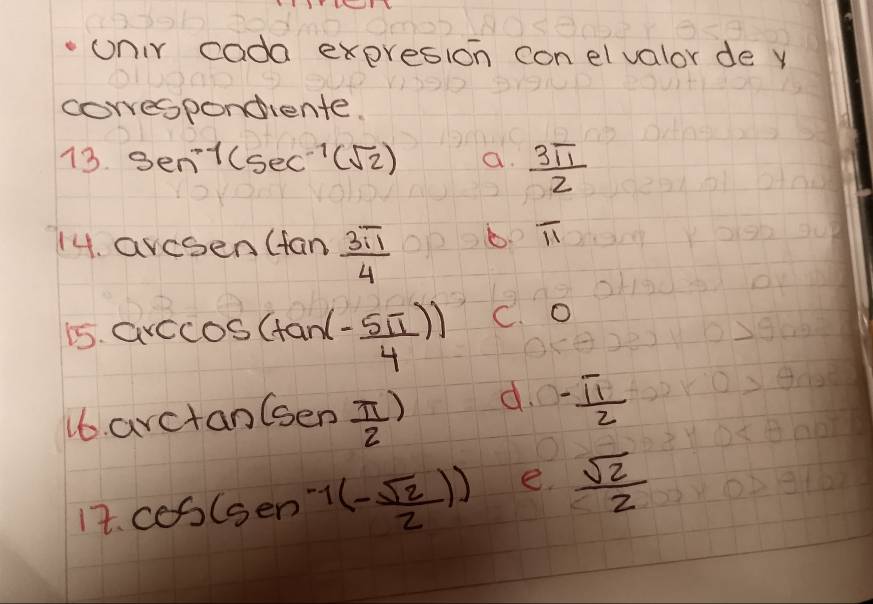 • Unir cada expresión con el valor de y
correspondiente.
13. sen⁻¹(sec⁻¹(√2) a. 3π/2
14. arcsen(tan 3π/4 b. π
15. arccos(tan(-5π/4)) c. 0
16. arctan(sen π/2) d. -π/2
17. cos(sen⁻¹(-√2/2)) e. √2/2